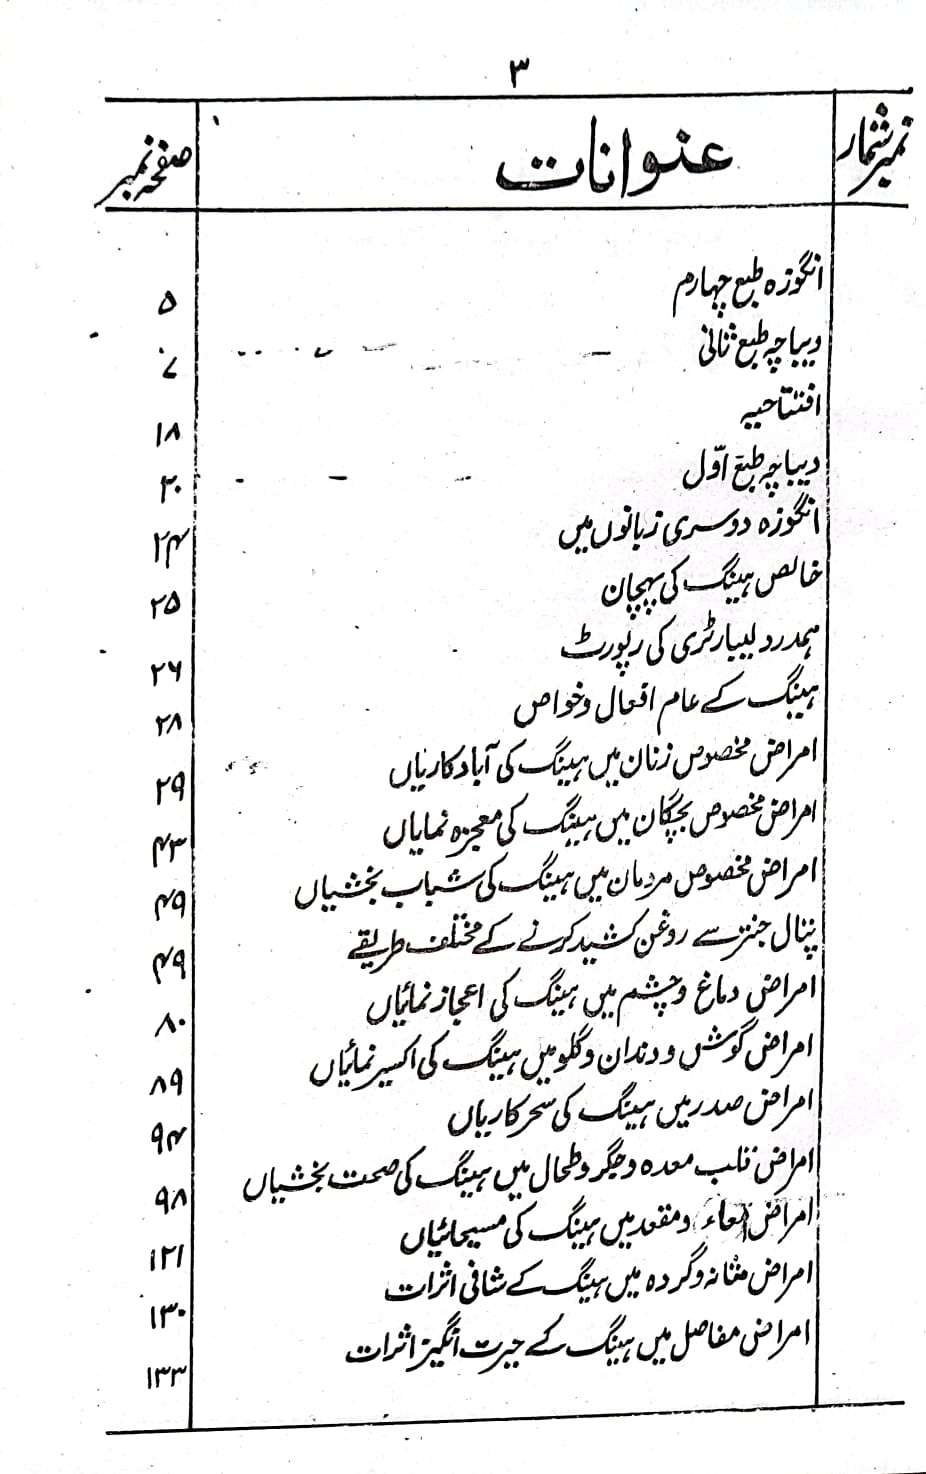 ۳
نمبر شمار عنوانات صفحہ نمبر
انگوزہ طبع چہارم ۵
دیباچہ طبع ثانی ۷
افتتاحیہ ۱۸
دیباچہ طبع اوّل ۲۰
انگوزہ دوسری زبانوں میں ۲۴
خالص ہینگ کی پہچان ۲۵
ہمدرد لیبارٹری کی رپورٹ ۲۶
ہینگ کے عام افعال و خواص ۲۸
امراض مخصوص زنان میں ہینگ کی آبادکاریاں ۲۹
امراض مخصوص بچگان میں ہینگ کی معجزہ نمایاں ۴۳
امراض مخصوص مردمان میں ہینگ کی شباب بخشیاں ۴۹
پتال جنتر سے روغن کشید کرنے کے مختلف طریقے ۴۹
امراض دماغ و چشم میں ہینگ کی اعجاز نمائیاں ۸۰
امراض گوش و دندان و گلو میں ہینگ کی اکسیر نمائیاں ۸۹
امراض صدر میں ہینگ کی سحر کاریاں ۹۴
امراض قلب معدہ و جگر و طحال میں ہینگ کی صحت بخشیاں ۹۸
امراض امعاء و مقعد میں ہینگ کی مسیحائیاں ۱۲۱
امراض مثانہ و گردہ میں ہینگ کے شافی اثرات ۱۳۰
امراض مفاصل میں ہینگ کے حیرت انگیز اثرات ۱۳۳